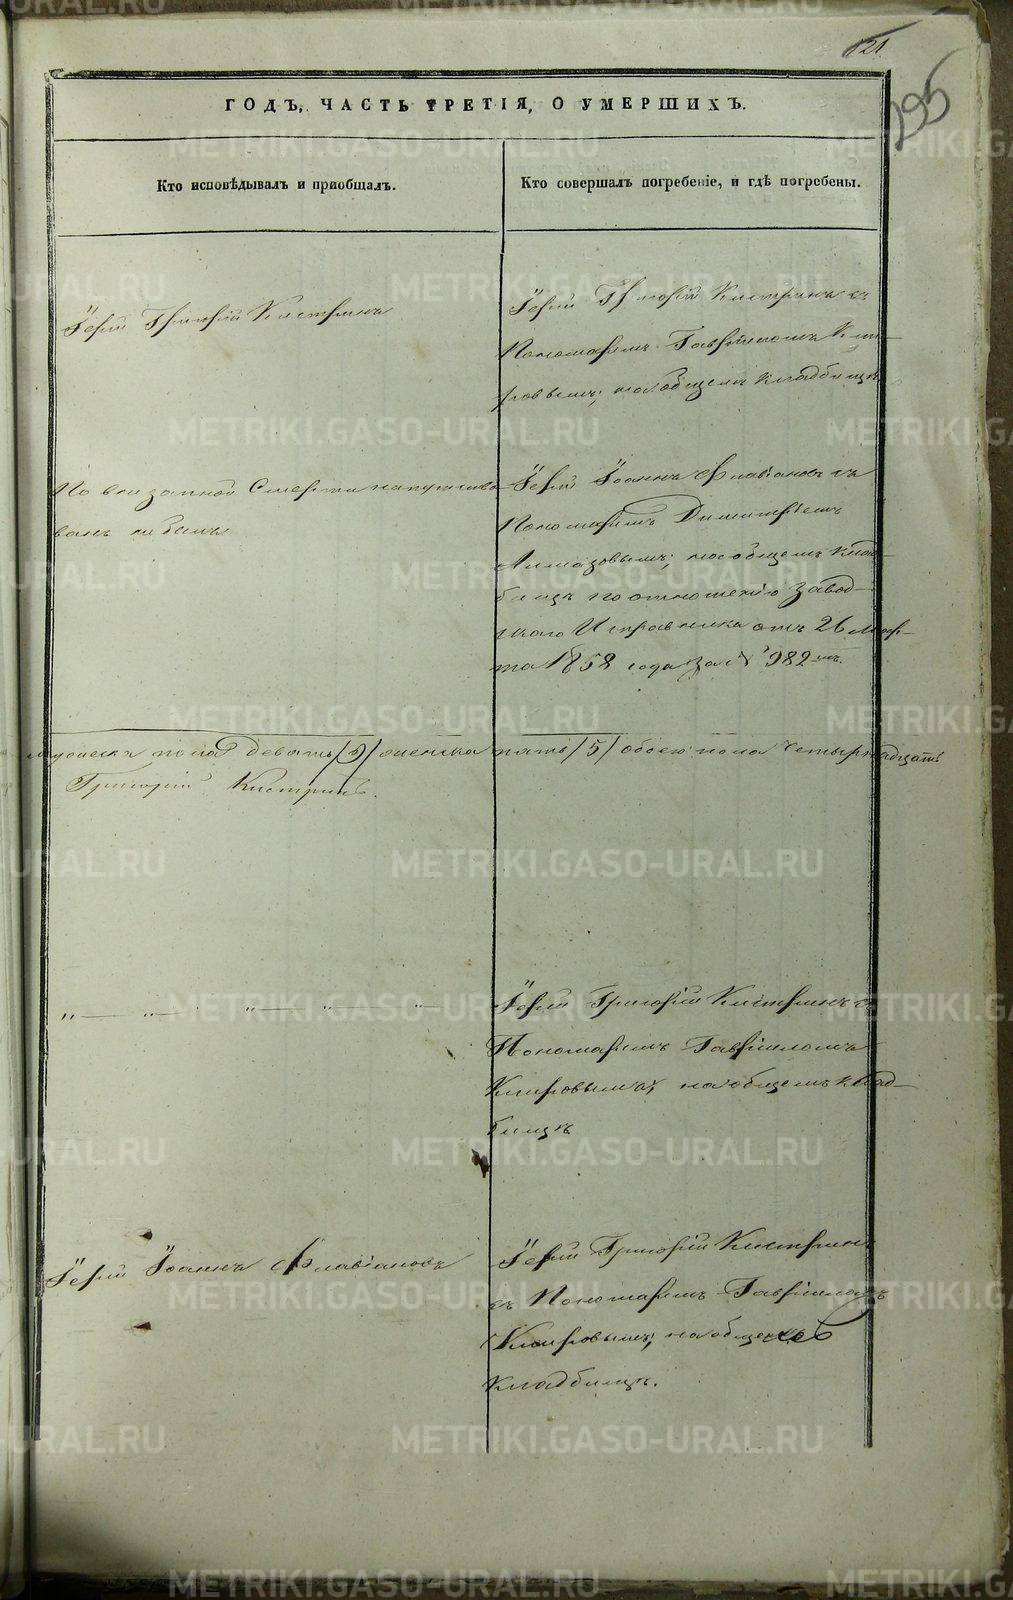 121
295
ГОДЪ, ЧАСТЬ ТРЕТІЯ, О УМЕРШИХЪ.
Кто исповѣдывалъ и пріобщалъ.
Кто совершалъ погребеніе, и гдѣ погребены.
Іерей Григорій Кистринъ
Іерей Григорій Кистринъ съ
Пономаремъ Гавріиломъ Кли-
ровымъ, на общемъ кладбищѣ
По внезапной Смерти напутство
ванъ не былъ
Іерей Іоаннъ Флавіановъ съ
Пономаремъ Димитріемъ
Алмазовымъ, на общемъ клад-
бищѣ по отношенію Завод-
скаго Исправника отъ 26 мар-
та 1858 года за № 982мъ.
мужеска пола девять /9/ женска пять /5/ обоего пола четырнадцать
Григорій Кистринъ.
Іерей Григорій Кистринъ съ
Пономаремъ Гавріиломъ
Клировымъ, на общемъ клад-
бищѣ
Іерей Іоаннъ Флавіановъ
Іерей Григорій Кистринъ
съ Пономаремъ Гавріиломъ
Клировымъ, на общемъ
Кладбищѣ.
METRIKI.GASO-URAL.RU